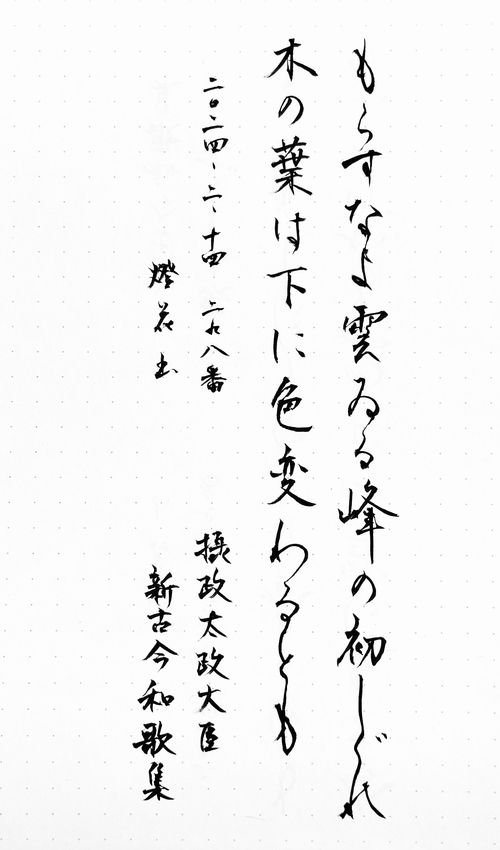 もらすなよ雲ゐる峰の初しぐれ
木の葉は下に色変わるとも
二〇二四、二、十四 二九八番
摂政太政大臣
燈花書
新古今和歌集